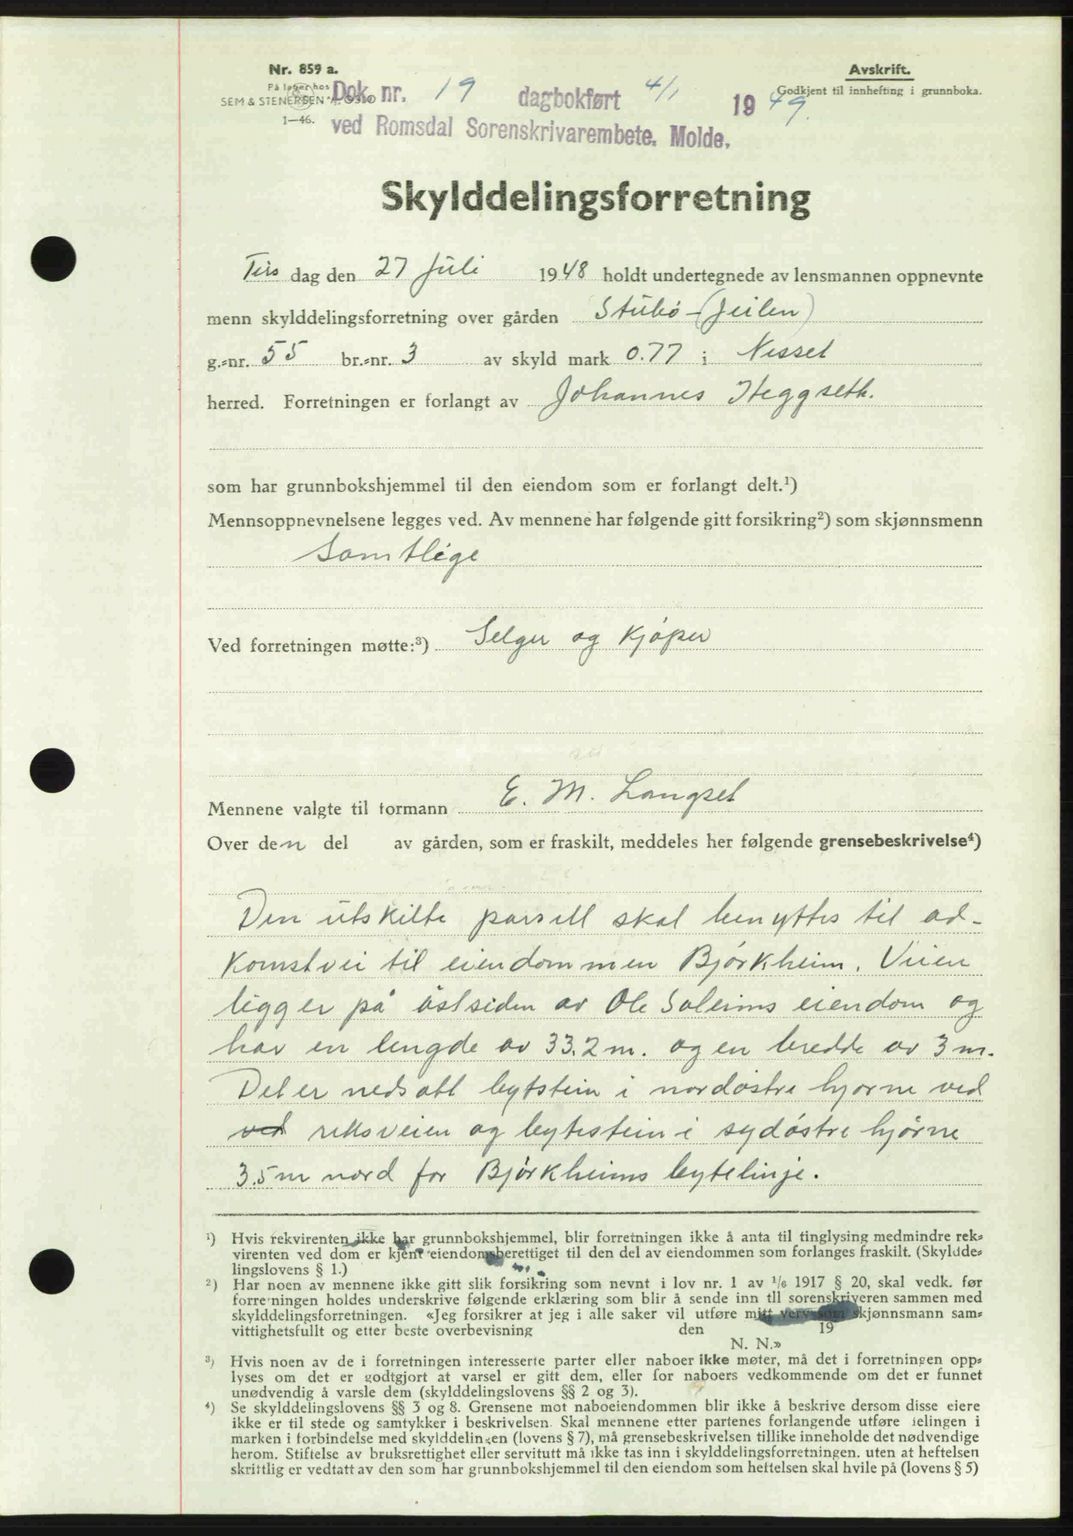 Nr. 859 a.
På lager hos
SEM & STENERSEN A/S OSLO
1—46.
Avskrift.
Godkjent til innhefting i grunnboka.
Dok. nr. 19 dagbokført 4/1 1949.
ved Romsdal Sorenskrivarembete. Molde.
Skylddelingsforretning
Tirs dag den 27 Juli 1948 holdt undertegnede av lensmannen oppnevnte
menn skylddelingsforretning over gården Stubø - (Jeilen)
g.=nr. 55 br.=nr. 3 av skyld mark 0.77 i Nesset
herred. Forretningen er forlangt av Johannes Heggseth.
som har grunnbokshjemmel til den eiendom som er forlangt delt.¹)
Mennsoppnevnelsene legges ved. Av mennene har følgende gitt forsikring²) som skjønnsmenn
Samtlige
Ved forretningen møtte:³) Selger og kjøper
Mennene valgte til formann E. M. Langset
Over den del av gården, som er fraskilt, meddeles her følgende grensebeskrivelse⁴)
Den utskilte parsell skal benyttes til ad-
komstvei til eiendommen Bjørkheim. Veien
ligger på østsiden av Ole Soleims eiendom og
har en lengde av 33.2 m. og en bredde av 3 m.
Det er nedsatt bytstein i nordøstre hjørne ved
ved reksveien og bytestein i sydøstre hjørne
3.5 m nord for Bjørkheims bytelinje.
¹) Hvis rekvirenten ikke har grunnbokshjemmel, blir forretningen ikke å anta til tinglysing medmindre rek=
virenten ved dom er kjent eiendomsberettiget til den del av eiendommen som forlanges fraskilt. (Skyldde=
lingslovens § 1.)
²) Har noen av mennene ikke gitt slik forsikring som nevnt i lov nr. 1 av 1/6 1917 § 20, skal vedk. før
forretningen holdes underskrive følgende erklæring som blir å sende inn til sorenskriveren sammen med
skylddelingsforretningen. «Jeg forsikrer at jeg i alle saker vil utføre mitt verv som skjønnsmann sam=
vittighetsfullt og etter beste overbevisning den 19
N. N.»
³) Hvis noen av de i forretningen interesserte parter eller naboer ikke møter, må det i forretningen opp=
lyses om det er godtgjort at varsel er gitt dem, eller for naboers vedkommende om det er funnet
unødvendig å varsle dem (skylddelingslovens §§ 2 og 3).
⁴) Se skylddelingslovens §§ 3 og 8. Grensene mot naboeiendommen blir ikke å beskrive dersom disse eiere
ikke er til stede og samtykker i beskrivelsen. Skal mennene etter partenes forlangende utføre delingen i
marken i forbindelse med skylddelingen (lovens § 7), må grensebeskrivelsen tillike inneholde det nødvendige
herom. Stiftelse av bruksrettighet eller servitutt må ikke tas inn i skylddelingsforretningen, uten at heftelsen
skriftlig er vedtatt av den som har grunnbokshjemmel til den eiendom som heftelsen skal hvile på (lovens § 5)